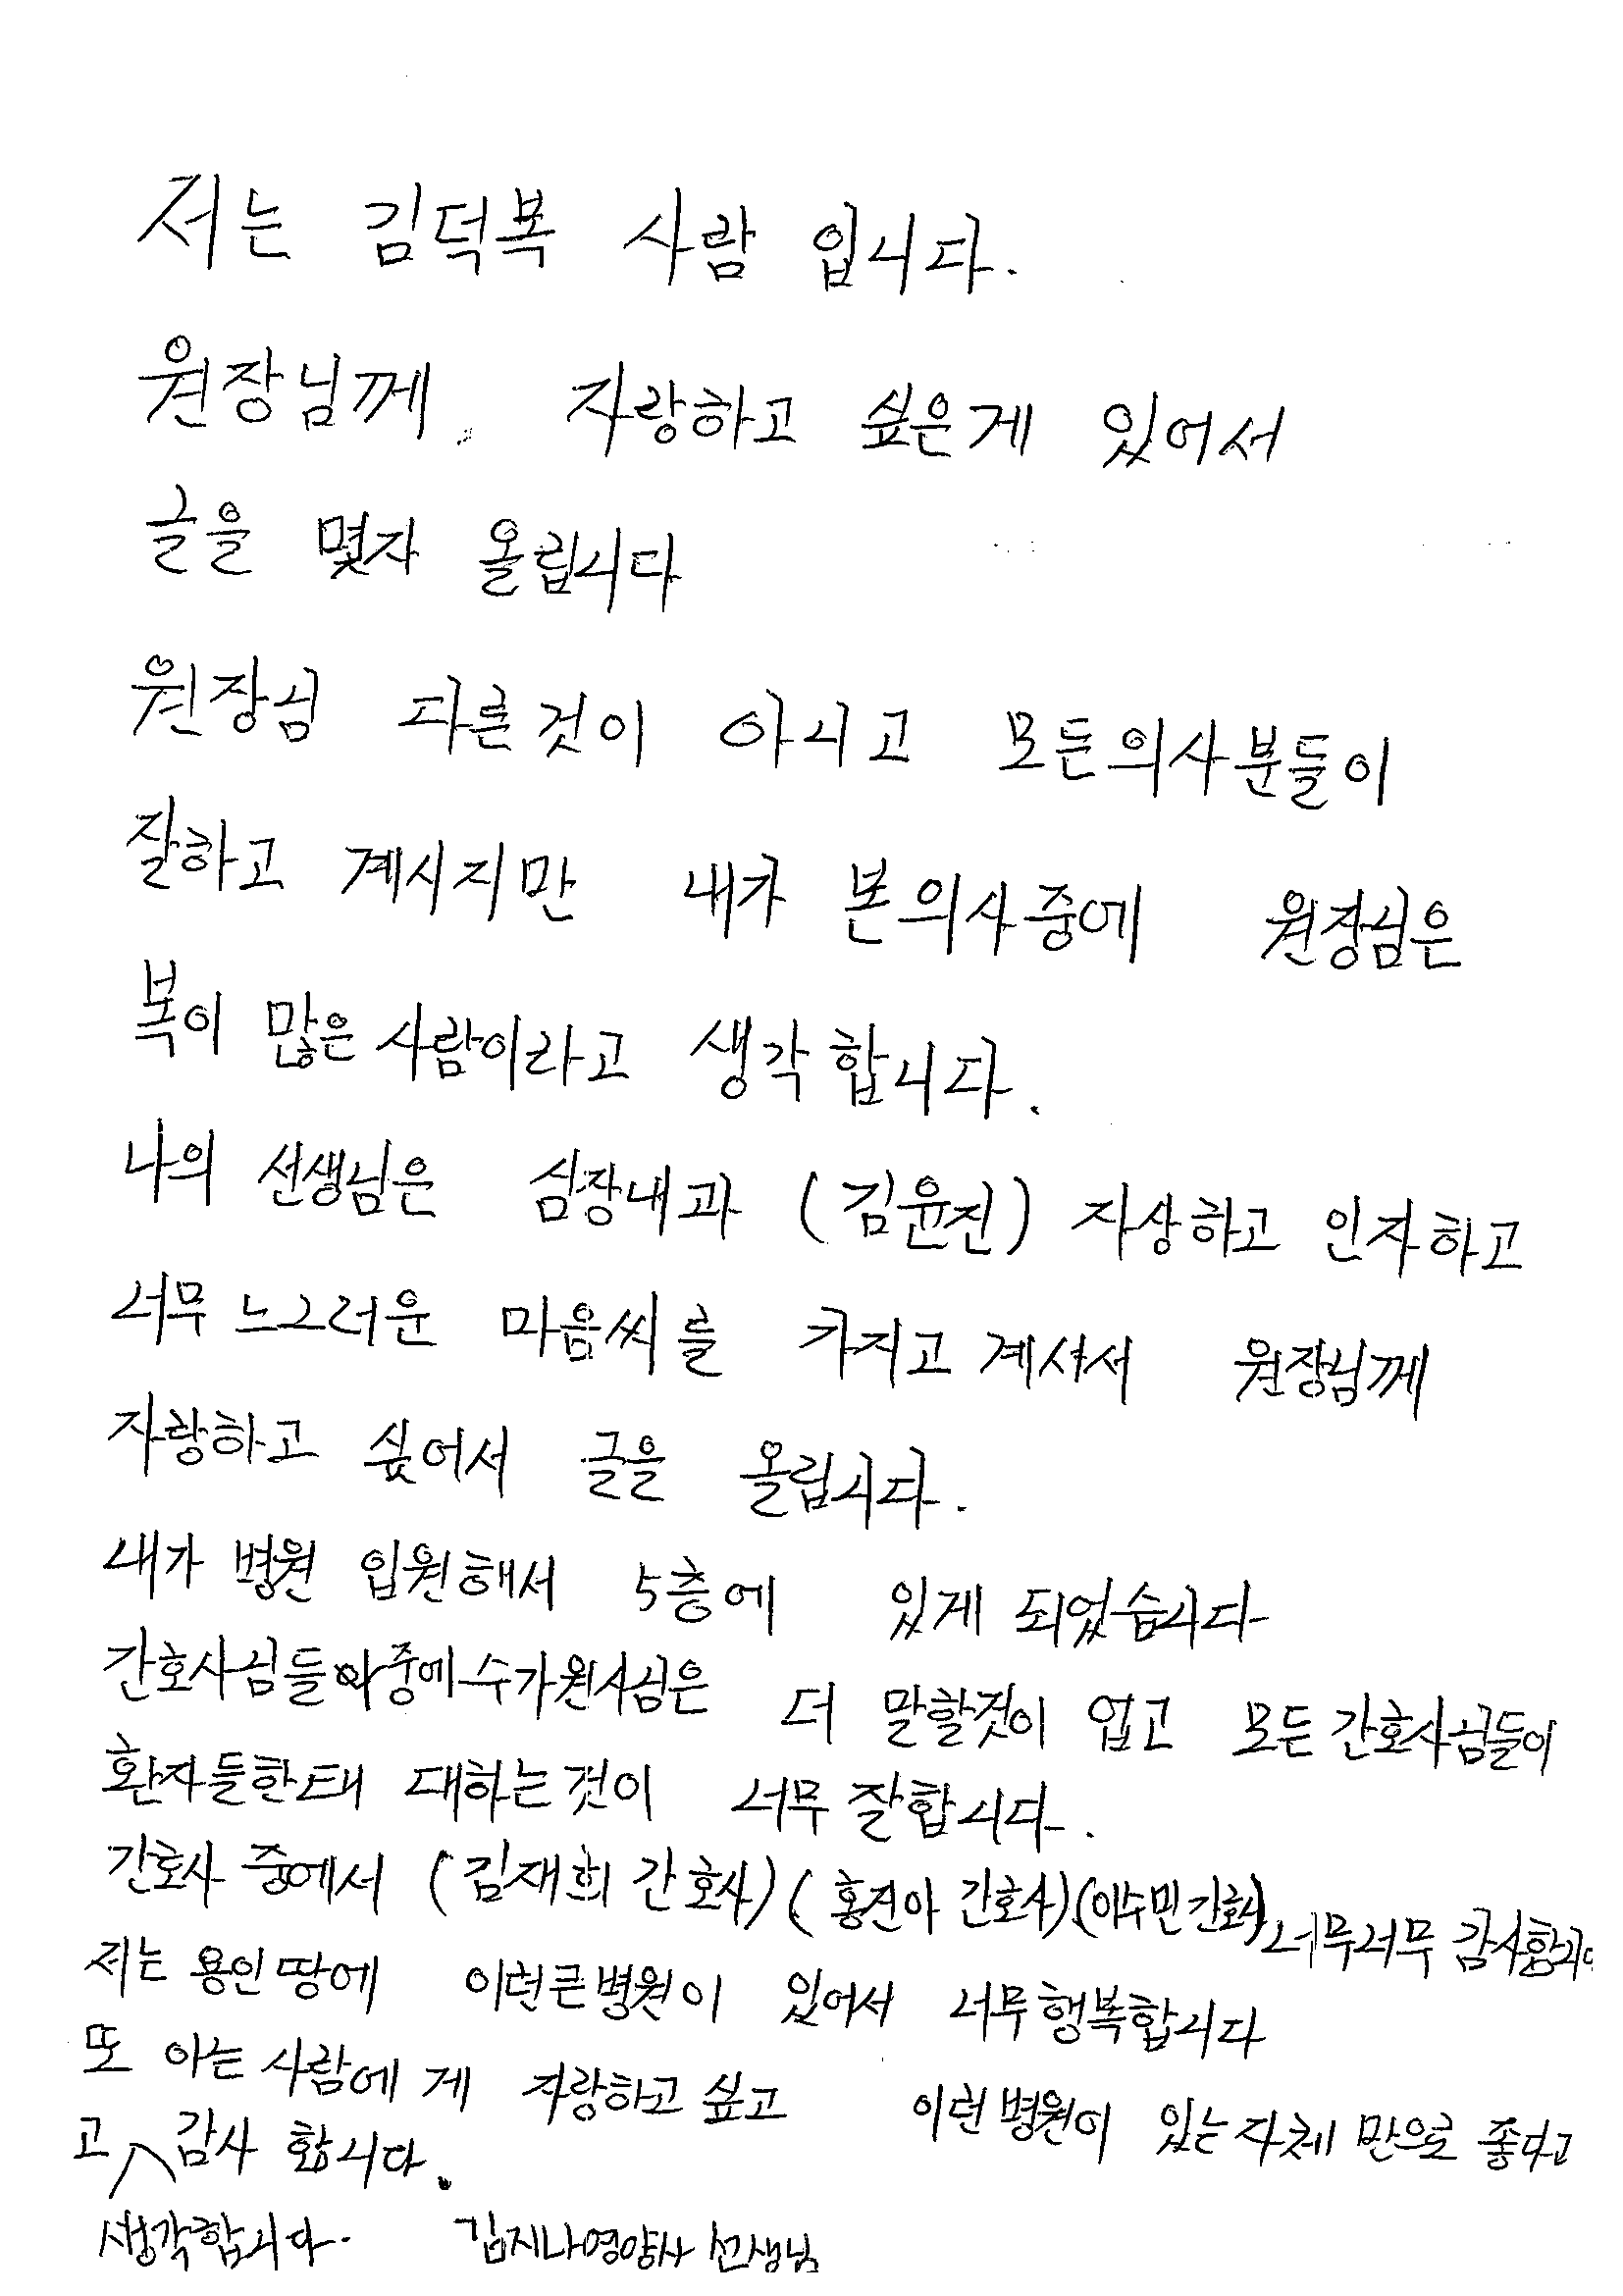 저는 김덕복 사람 입니다.
원장님께 자랑하고 싶은게 있어서
글을 몇자 올립니다
원장님 다른것이 아니고 모든의사분들이
잘하고 계시지만 내가 본의사중에 원장님은
복이 많은 사람이라고 생각 합니다.
나의 선생님은 심장내과 (김윤진) 자상하고 인자하고
너무 느그러운 마음씨를 가지고 계셔서 원장님께
자랑하고 싶어서 글을 올립니다.
내가 병원 입원해서 5층에 있게 되었습니다
간호사님들 중에 수가원사님은 더 말할것이 업고 모든 간호사님들이
환자들한태 대하는것이 너무 잘합니다.
간호사 중에서 (김재희 간호사) (홍진아 간호사) (이수민간호사) 너무너무 감사합니다
저는 용인땅에 이런큰병원이 있어서 너무행복합니다
또 아는 사람에 게 자랑하고 싶고 이런병원이 있는자체 만으로 좋다고
고 감사 합니다.
생각합니다. 김지나영양사 선생님